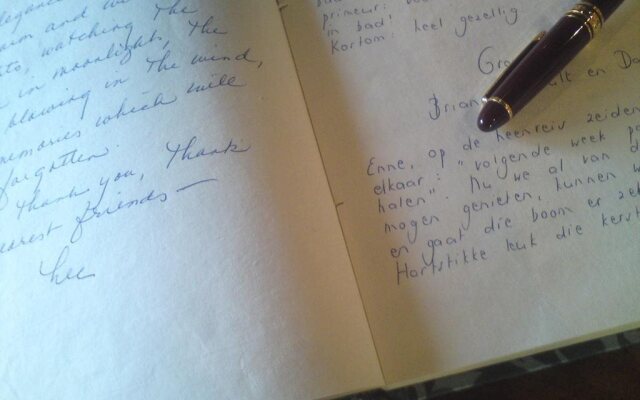 elegance
and we
watching the
in moonlight, the
blowing in the wind,
memories which will
forgotten.
Thank you, thank
dearest friends —
Lee
princeur:
in bad!
Kortom: heel gezellig.
Gro
Brian en Da
Enne, op de heenreis zeiden
elkaar: "volgende week
halen". Nu we al van d
mogen genieten, kunnen w
en gaat die boom er ze
Hartstikke leuk die kerst